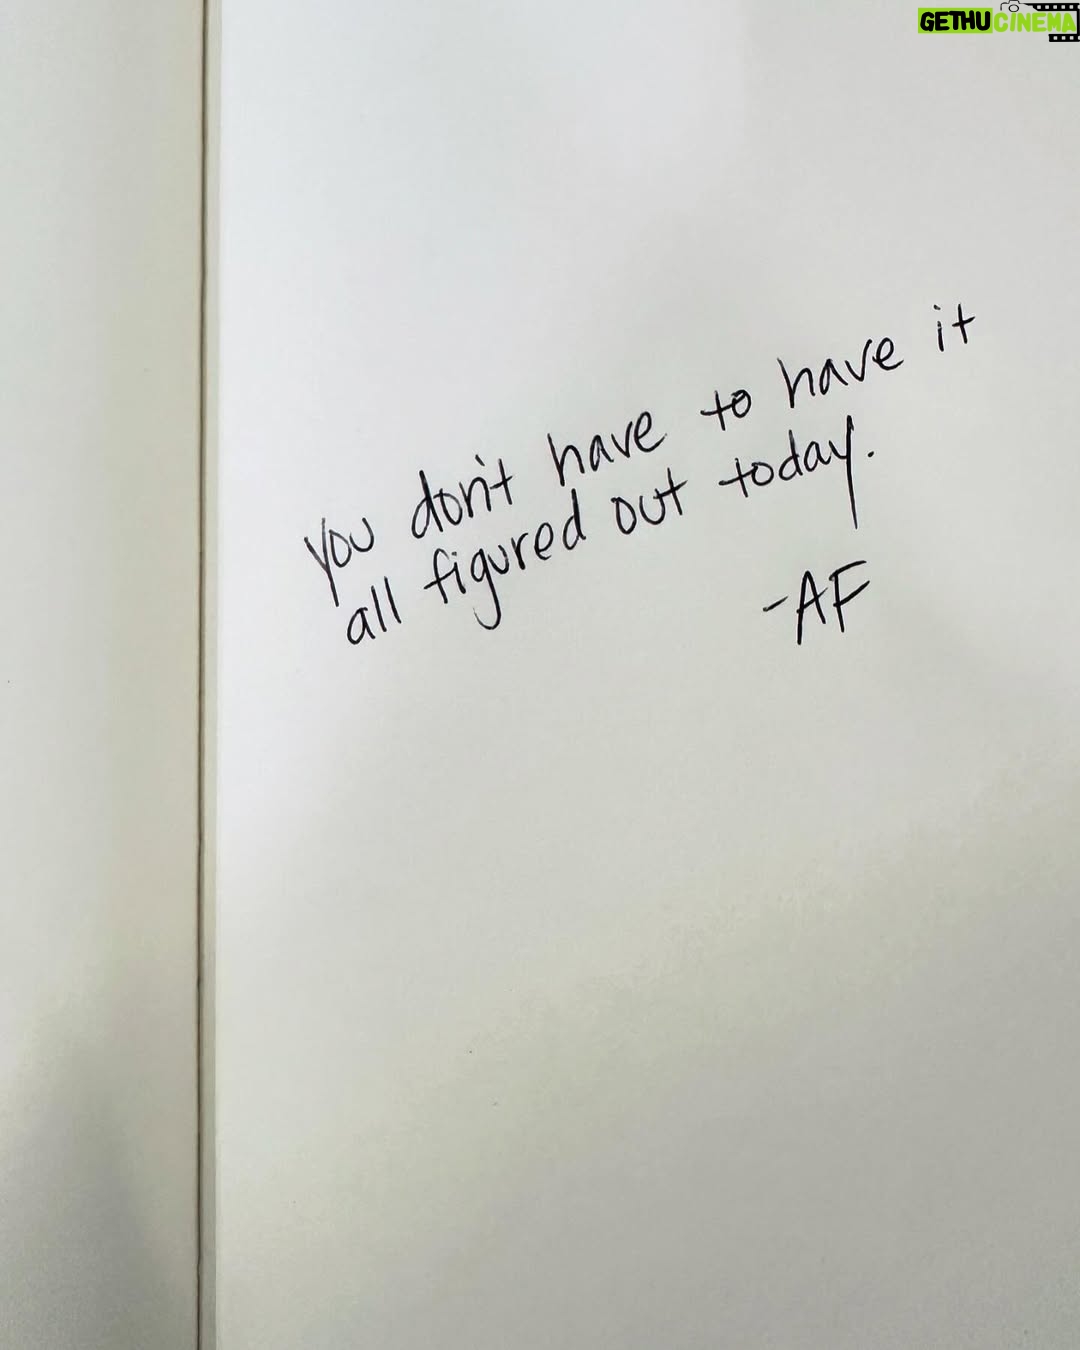 GETHUCINEMA
you don't have to have it
all figured out today.
-AF